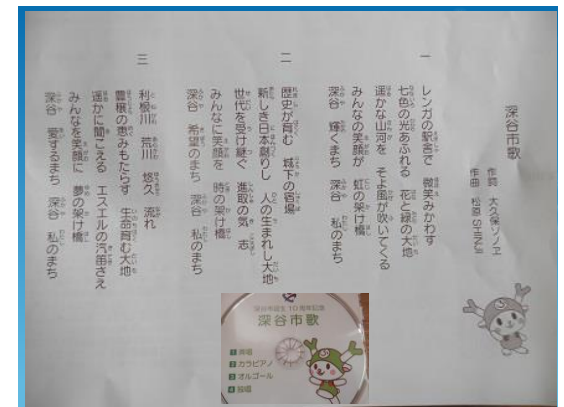 深谷市歌
作詞 大久保ソノヱ
作曲 松原SHINJI
一
レンガの駅舎で 微笑みかわす
七色の光あふれる 花と緑の大地
遥かな山河を そよ風が吹いてくる
みんなの笑顔が 虹の架け橋
深谷 輝くまち 深谷 私のまち
二
歴史が育む 城下の宿場
新しき日本創りし 人の生まれし大地
世代を受け継ぐ 進取の気 志
みんなに笑顔を 時の架け橋
深谷 希望のまち 深谷 私のまち
三
利根川 荒川 悠久 流れ
豊穣の恵みもたらす 生命育む大地
遥かに聞こえる エスエルの汽笛さえ
みんなを笑顔に 夢の架け橋
深谷 愛するまち 深谷 私のまち
深谷市誕生10周年記念
深谷市歌
1 斉唱
2 カラピアノ
3 オルゴール
4 独唱